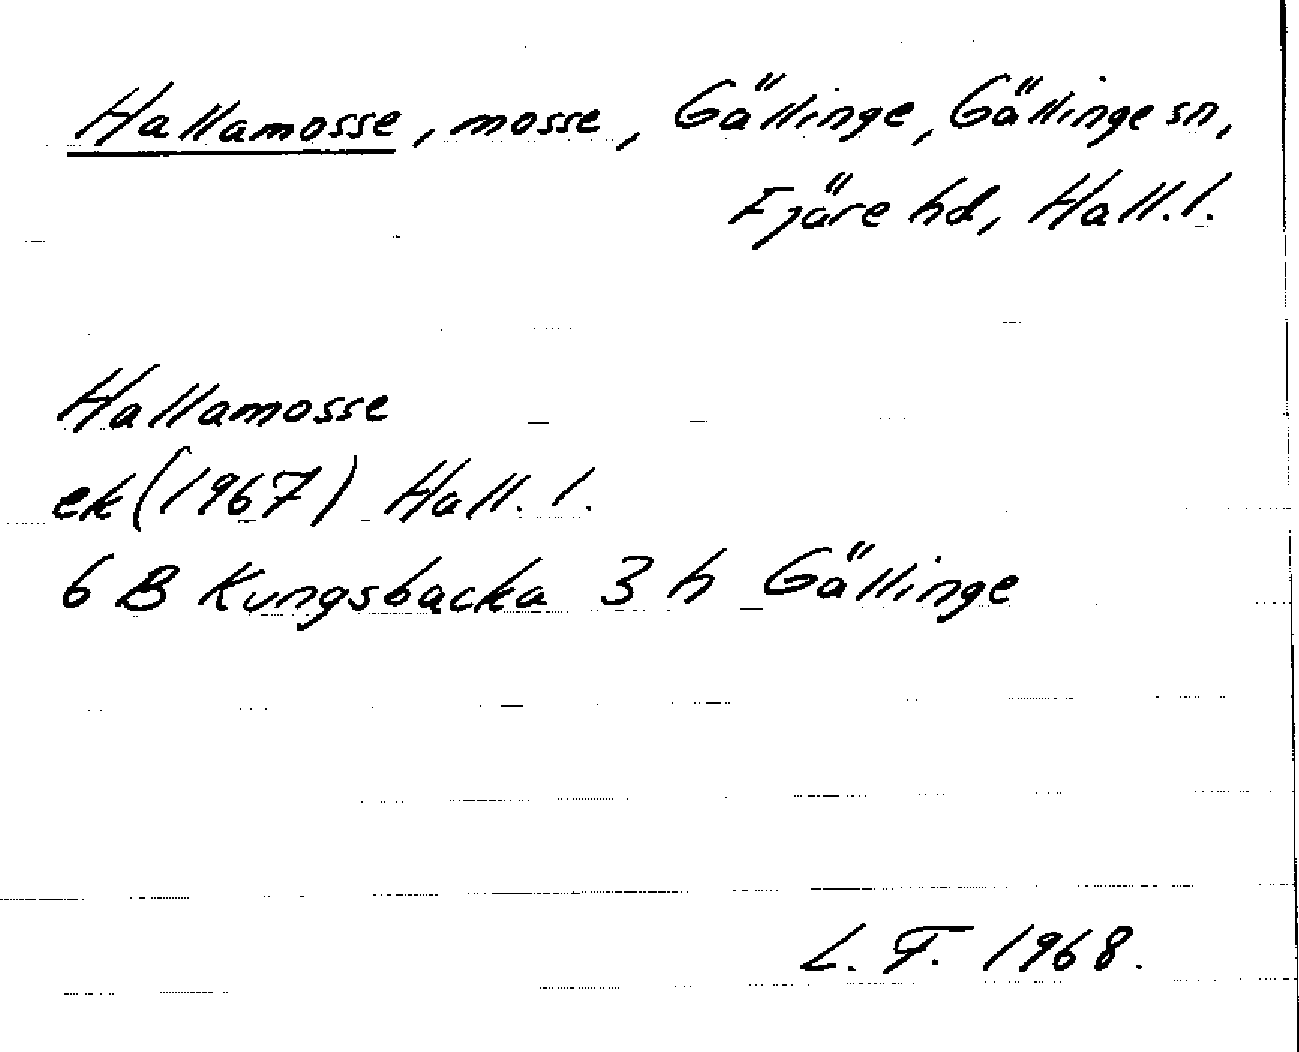 Hallamosse, mosse, Gällinge, Gällinge sn,
Fjäre hd, Hall. l.
Hallamosse
ek (1967) Hall. l.
6 B Kungsbacka 3 h Gällinge
L. F. 1968.